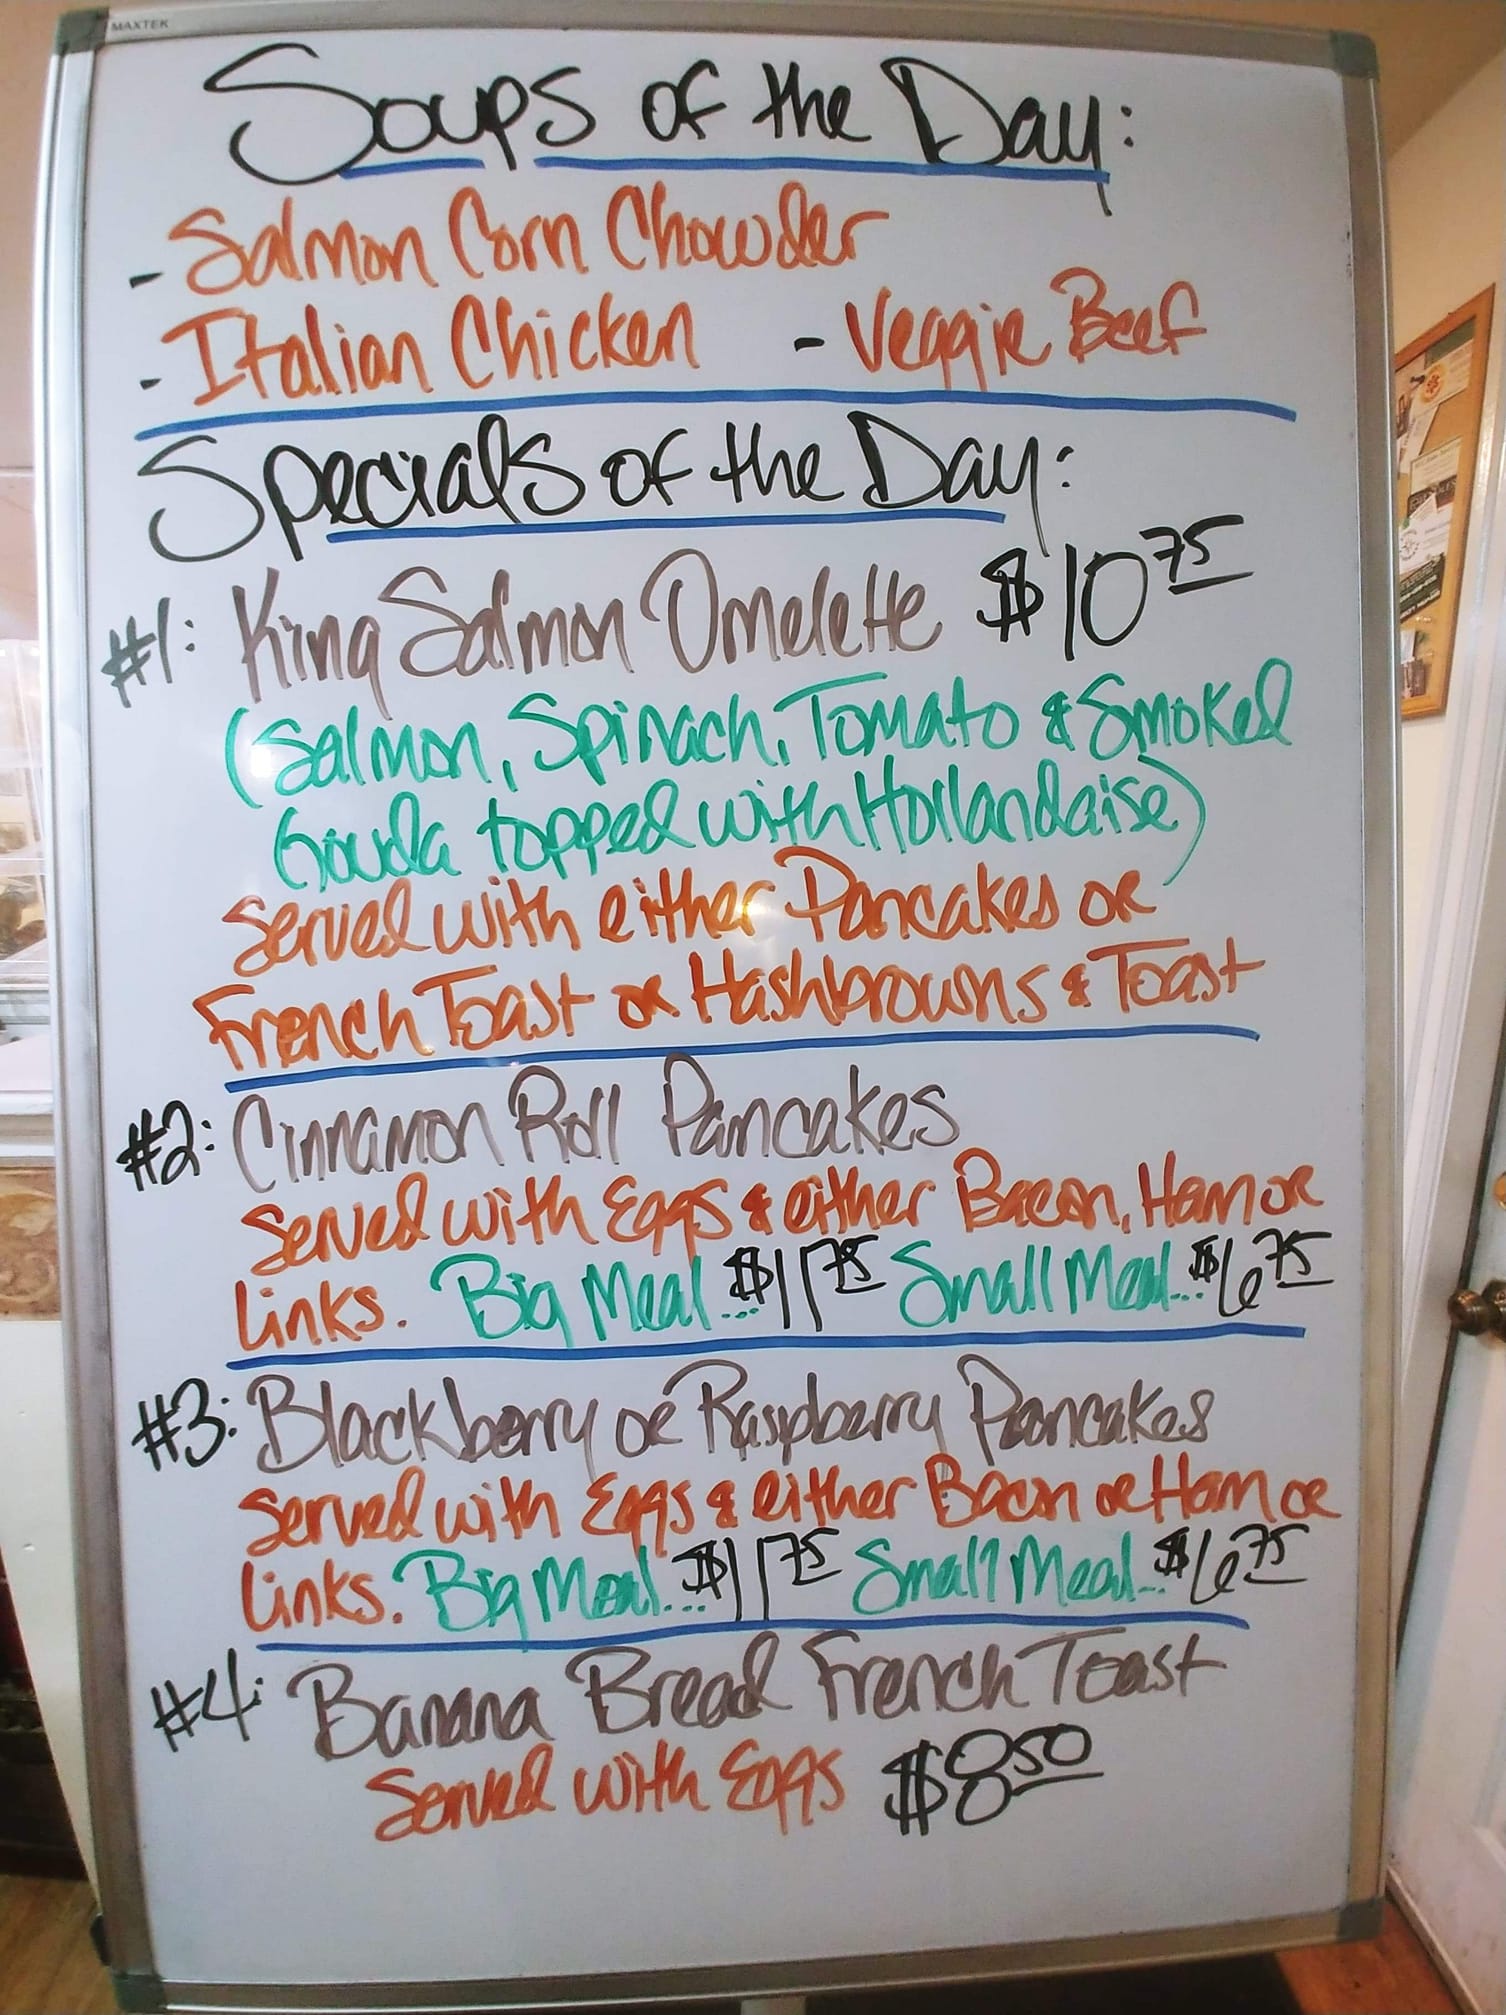 MAXTEK
Soups of the Day:
- Salmon Corn Chowder
- Italian Chicken - Veggie Beef
Specials of the Day:
#1: King Salmon Omelette $10 75
(Salmon, Spinach, Tomato & Smoked
Gouda topped with Hollandaise)
Served with either Pancakes or
French Toast or Hashbrowns & Toast
#2: Cinnamon Roll Pancakes
Served with Eggs & either Bacon, Ham or
Links. Big Meal...$11 75 Small Meal...$6 75
#3: Blackberry or Raspberry Pancakes
Served with Eggs & either Bacon or Ham or
Links. Big Meal...$11 75 Small Meal...$6 75
#4: Banana Bread French Toast
Served with Eggs $8 50